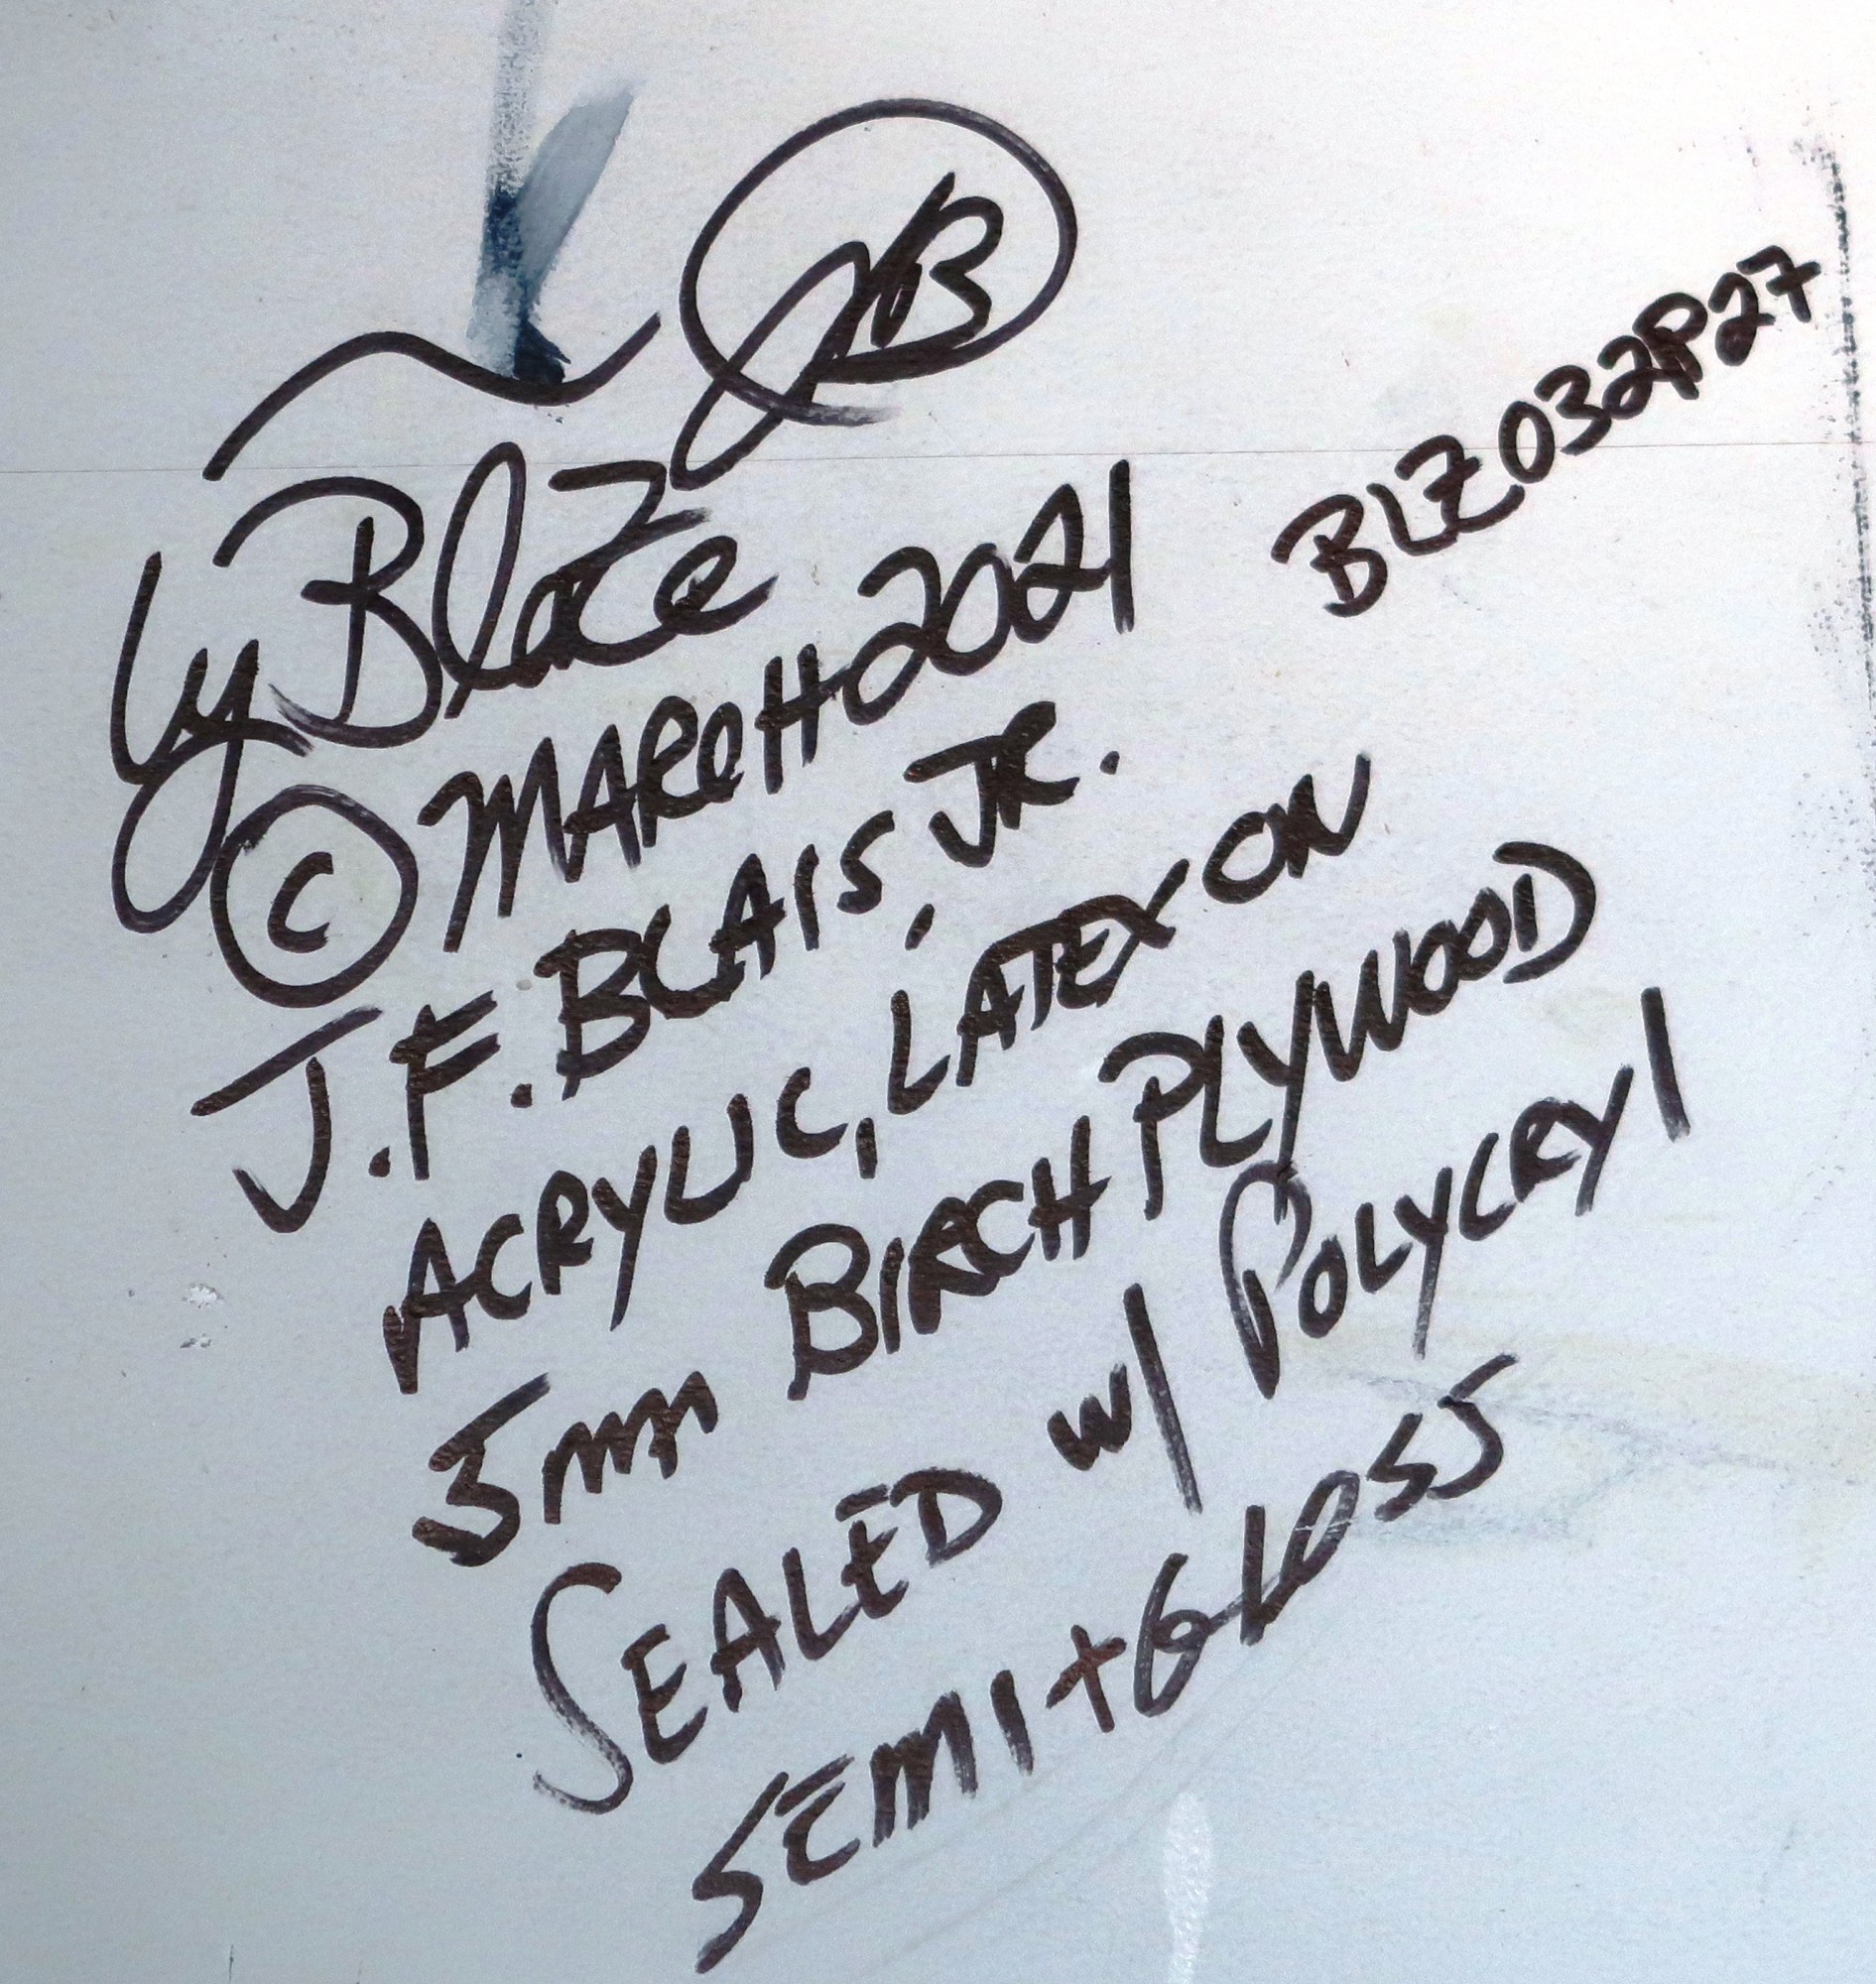 JB
Ly Blaze
© MARCH 2021
BLZ032P27
J.F. BLAIS, JR.
ACRYLIC, LATEX ON
5mm BIRCH PLYWOOD
SEALED w/ POLYCRYl
SEMI+GLOSS